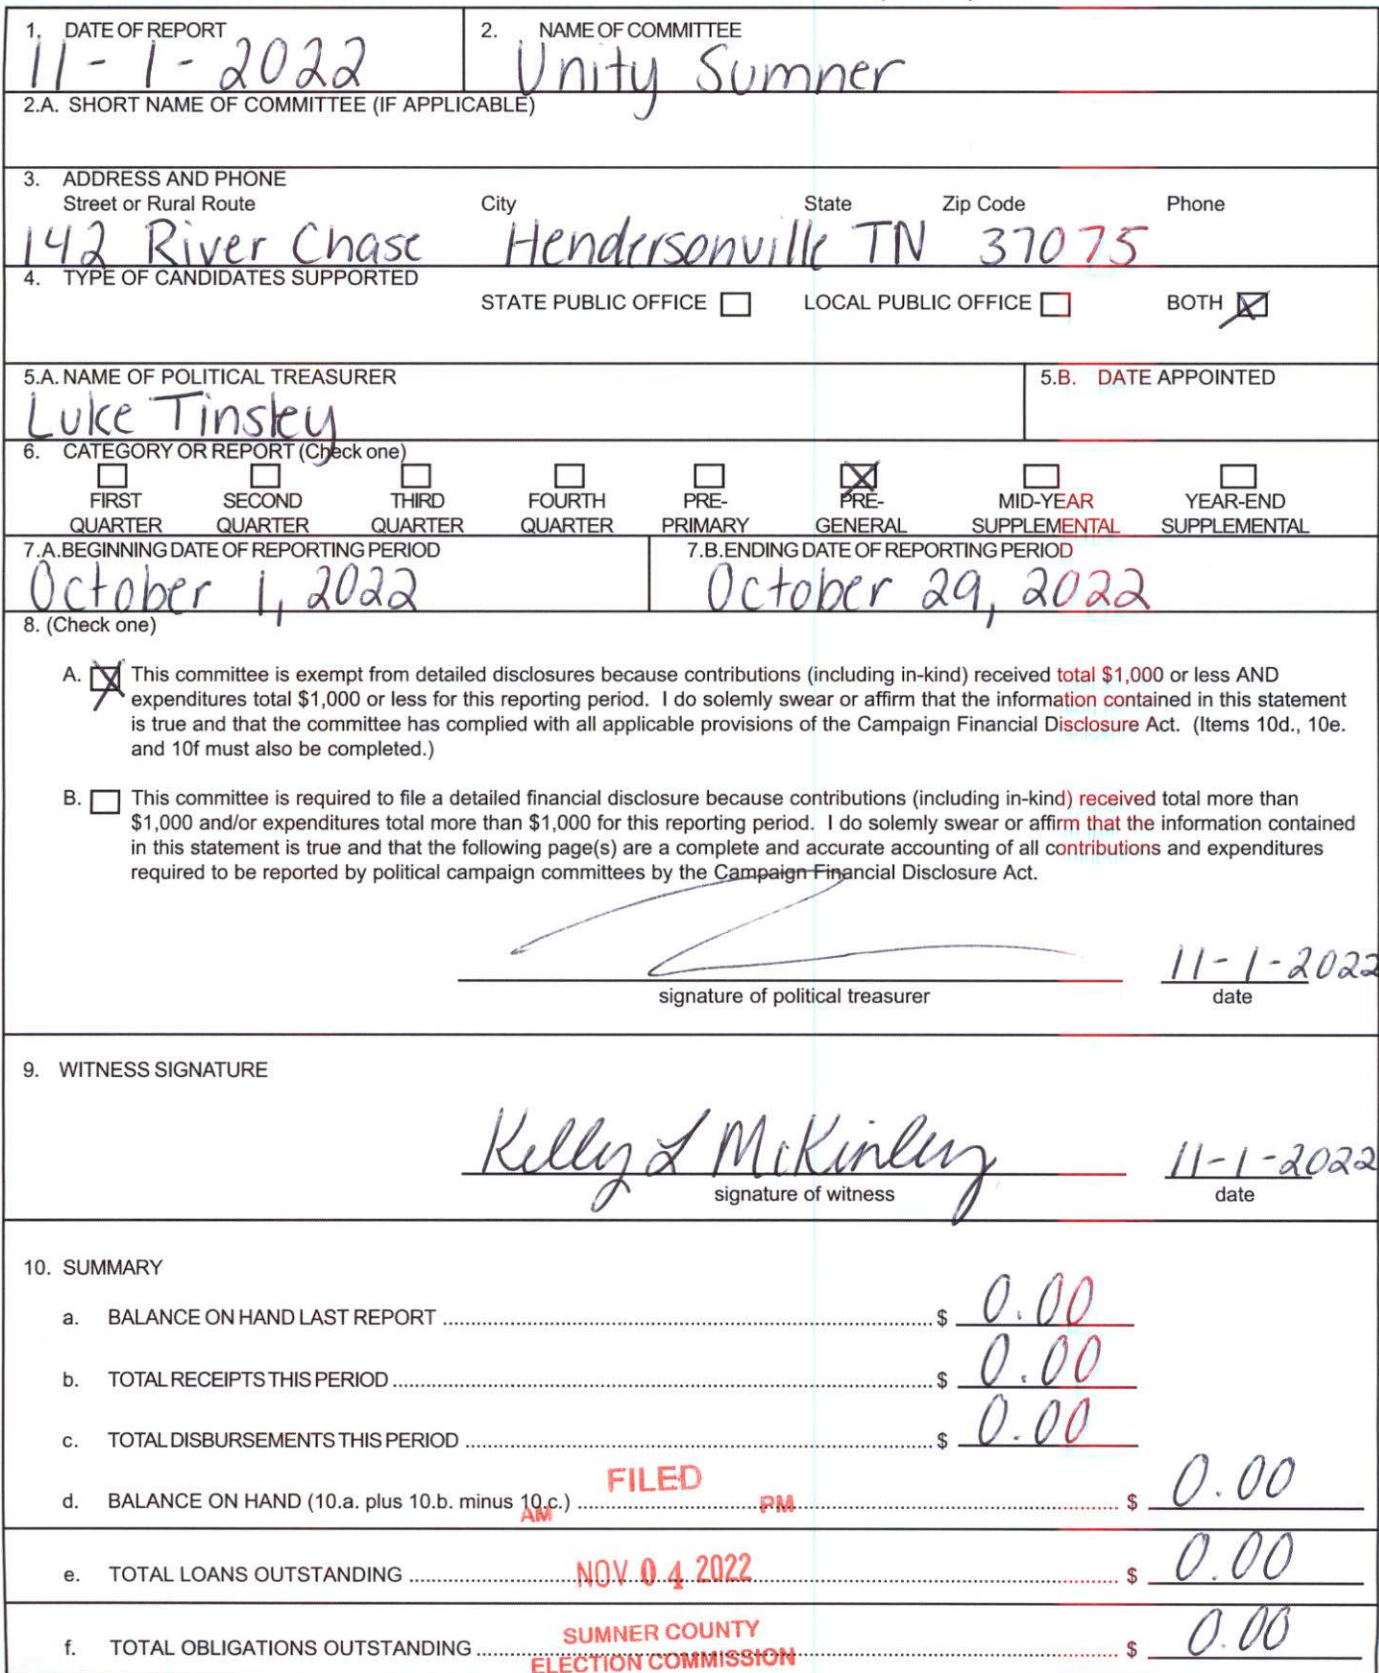 1. DATE OF REPORT
11-1-2022
2. NAME OF COMMITTEE
Unity Sumner
2.A. SHORT NAME OF COMMITTEE (IF APPLICABLE)
3. ADDRESS AND PHONE
Street or Rural Route City State Zip Code Phone
142 River Chase Hendersonville TN 37075
4. TYPE OF CANDIDATES SUPPORTED
STATE PUBLIC OFFICE LOCAL PUBLIC OFFICE BOTH
5.A. NAME OF POLITICAL TREASURER
Luke Tinsley
5.B. DATE APPOINTED
6. CATEGORY OR REPORT (Check one)
FIRST SECOND THIRD FOURTH PRE- PRE- MID-YEAR YEAR-END
QUARTER QUARTER QUARTER QUARTER PRIMARY GENERAL SUPPLEMENTAL SUPPLEMENTAL
7.A.BEGINNING DATE OF REPORTING PERIOD
October 1, 2022
7.B.ENDING DATE OF REPORTING PERIOD
October 29, 2022
8. (Check one)
A. This committee is exempt from detailed disclosures because contributions (including in-kind) received total $1,000 or less AND
expenditures total $1,000 or less for this reporting period. I do solemly swear or affirm that the information contained in this statement
is true and that the committee has complied with all applicable provisions of the Campaign Financial Disclosure Act. (Items 10d., 10e.
and 10f must also be completed.)
B. This committee is required to file a detailed financial disclosure because contributions (including in-kind) received total more than
$1,000 and/or expenditures total more than $1,000 for this reporting period. I do solemly swear or affirm that the information contained
in this statement is true and that the following page(s) are a complete and accurate accounting of all contributions and expenditures
required to be reported by political campaign committees by the Campaign Financial Disclosure Act.
11-1-2022
signature of political treasurer date
9. WITNESS SIGNATURE
Kelly L McKinley 11-1-2022
signature of witness date
10. SUMMARY
a. BALANCE ON HAND LAST REPORT $ 0.00
b. TOTAL RECEIPTS THIS PERIOD $ 0.00
c. TOTAL DISBURSEMENTS THIS PERIOD $ 0.00
FILED
d. BALANCE ON HAND (10.a. plus 10.b. minus 10.c.) $ 0.00
AM PM
e. TOTAL LOANS OUTSTANDING $ 0.00
NOV 04 2022
f. TOTAL OBLIGATIONS OUTSTANDING $ 0.00
SUMNER COUNTY
ELECTION COMMISSION